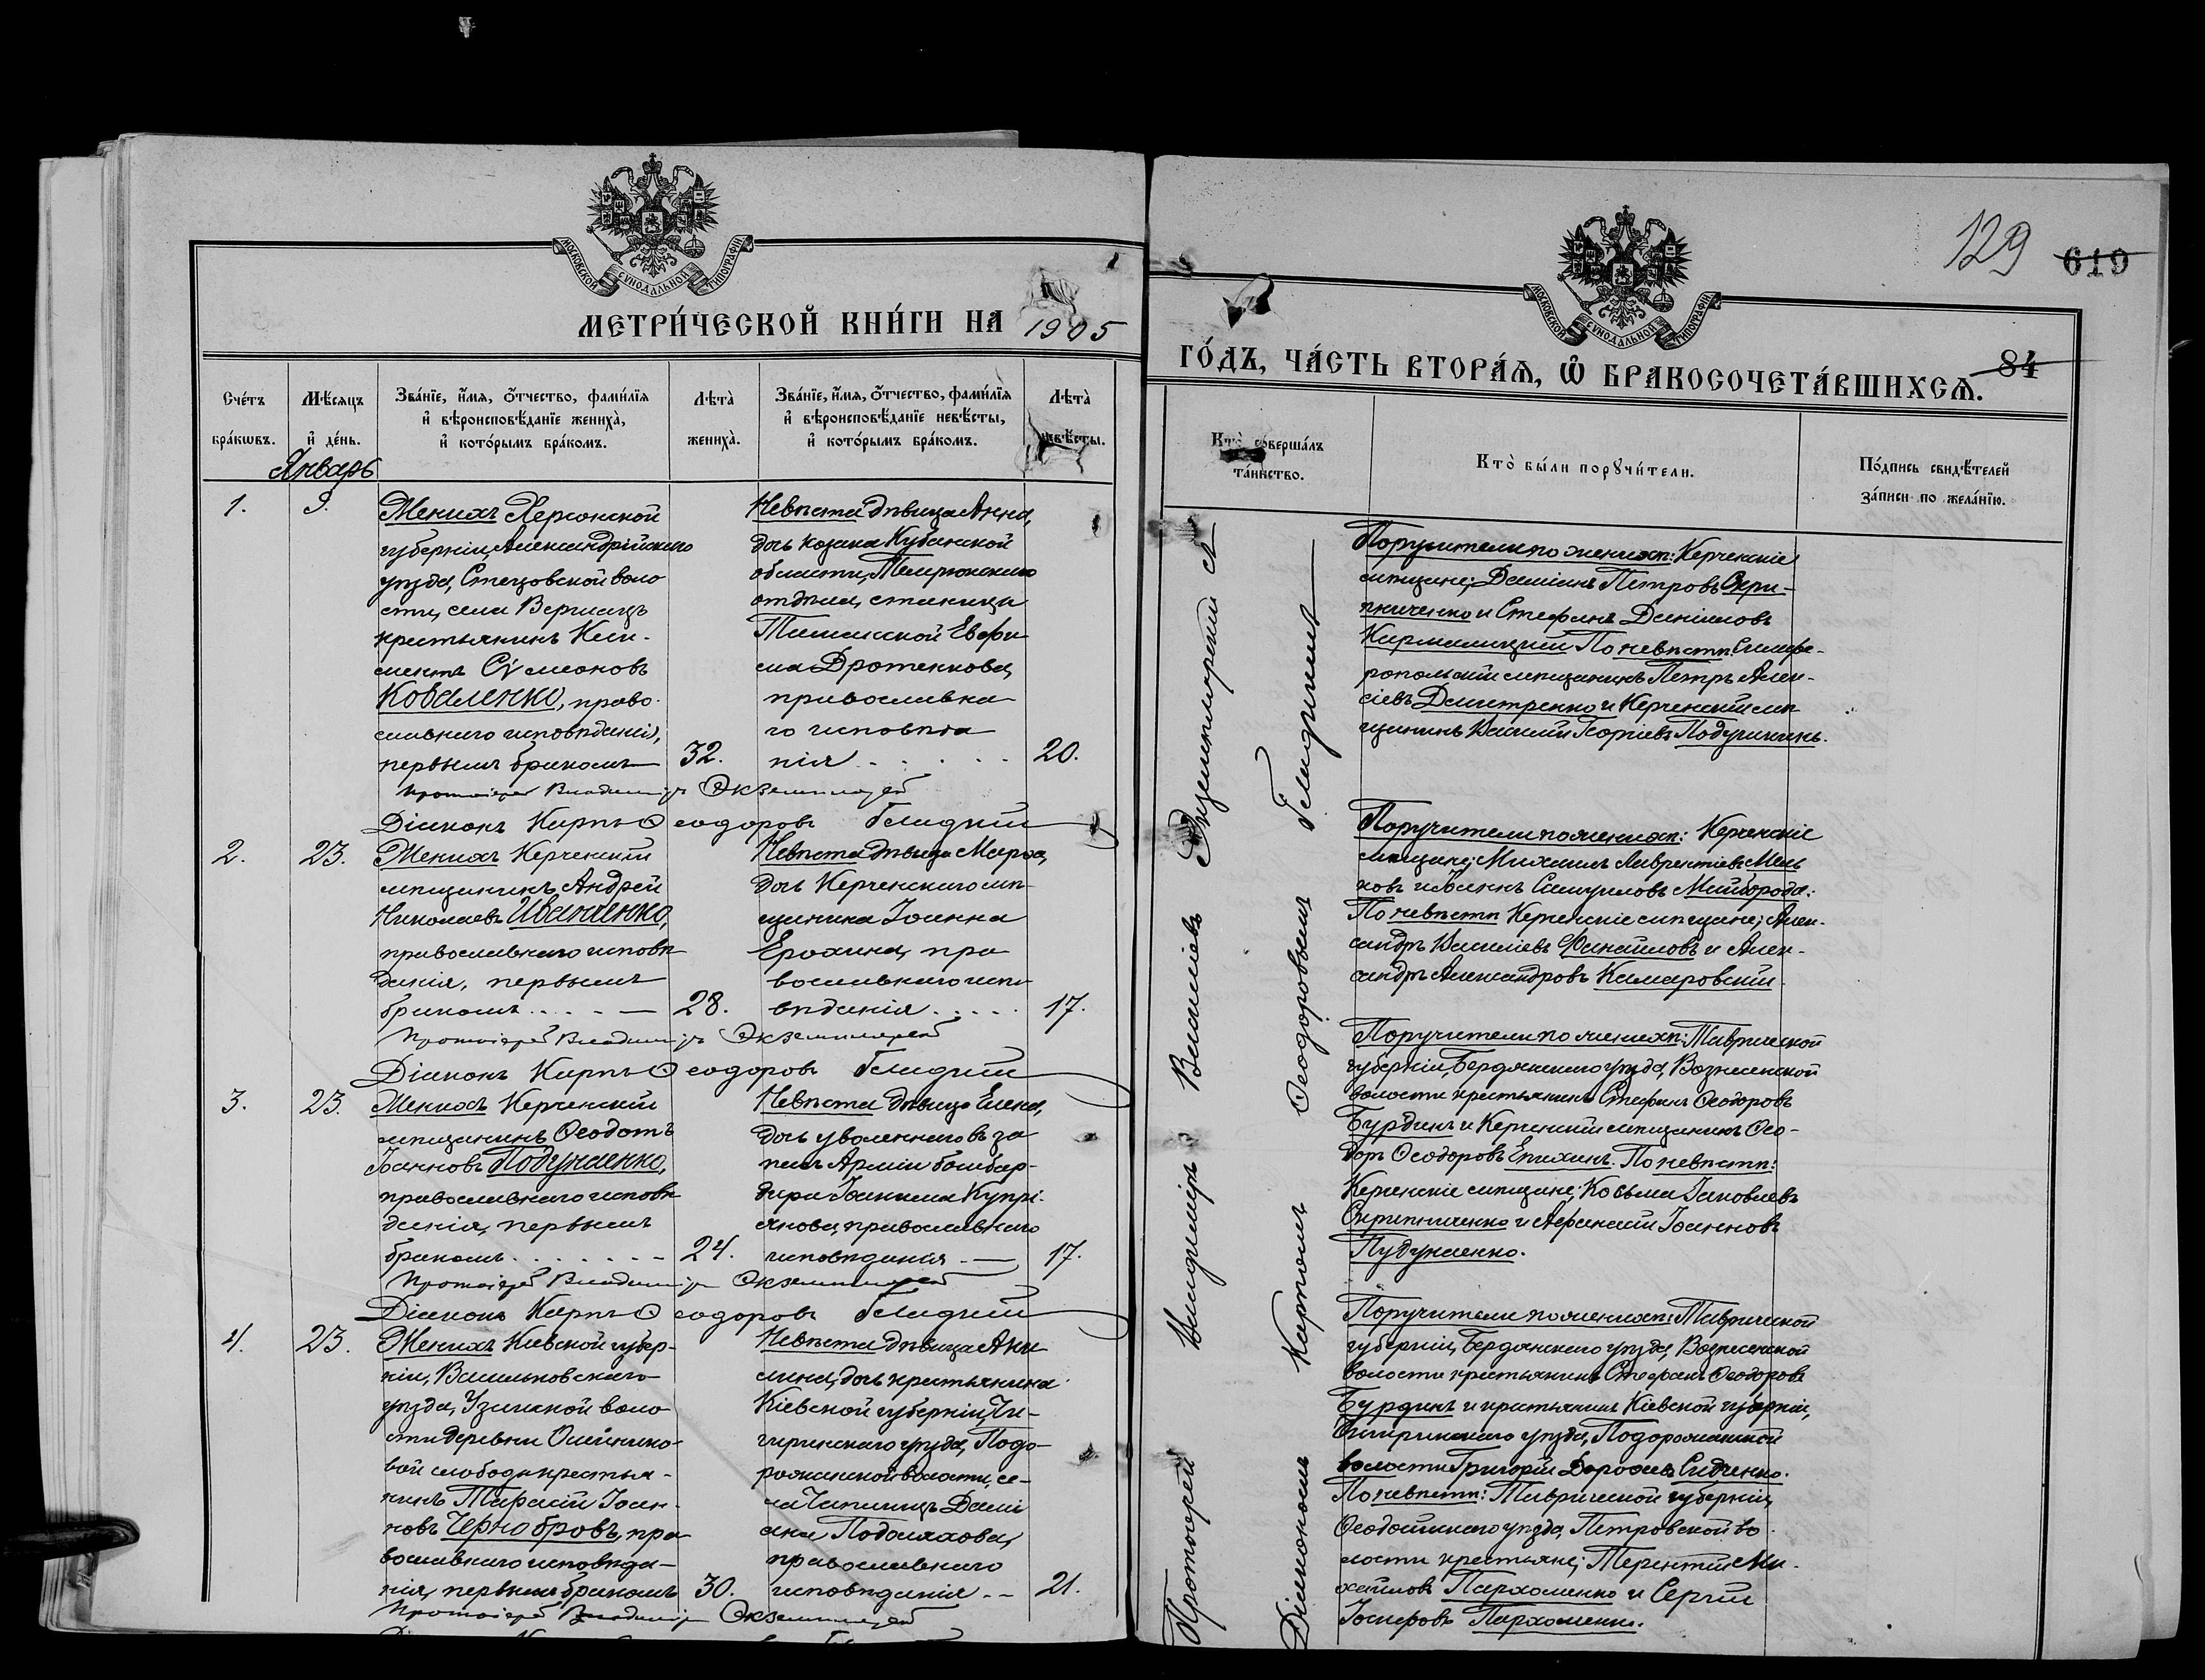 129 619
МОСКОВСКОЙ СѴНОДАЛЬНОЙ ТИПОГРАФІИ
МЕТРИ́ЧЕСКОЙ КНИ́ГИ НА 1905
Сче́тъ бра́кѡвъ.
Мѣ́сяцъ и҆ де́нь.
Зва́нїе, и҆́мя, ѻ҆́тчество, фами́лїя
и҆ вѣроисповѣ́данїе жениха̀,
и҆ кото́рымъ бра́комъ.
Лѣта̀ жениха̀.
Зва́нїе, и҆́мя, ѻ҆́тчество, фами́лїя
и҆ вѣроисповѣ́данїе невѣ́сты,
и҆ кото́рымъ бра́комъ.
Лѣта̀ невѣ́сты.
Январь
1. 9.
Женихъ Херсонской
губерніи, Александрійскаго
уѣзда, Стецовской воло
сти, села Вершацъ
крестьянинъ Кли-
ментъ Сѵмеоновъ
Коваленко, право-
славнаго исповѣданія,
первымъ бракомъ 32.
Невѣста дѣвица Анна,
дочь козака Кубанской
области, Темрюкскаго
отдѣла, станицы
Евфи
ма Дротенкова,
православна
го исповѣда
нія 20.
Протоіерей Владиміръ Экземплярскій
Діаконъ Карпъ Ѳеодоровъ Гладкій
2. 23.
Женихъ Керченскій
мѣщанинъ, Андрей
Николаевъ Иванченко,
православнаго исповѣ
данія, первымъ
бракомъ 28.
Невѣста дѣвица Марѳа,
дочь Керченскаго мѣ-
щанина Іоанна
Ерохина, пра
вославнаго испо
вѣданія 17.
Протоіерей Владиміръ Экземплярскій
Діаконъ Карпъ Ѳеодоровъ Гладкій
3. 23.
Женихъ Керченскій
мѣщанинъ Ѳеодотъ
Іоанновъ Подунаенко,
православнаго исповѣ
данія, первымъ
бракомъ 24.
Невѣста дѣвица Елена,
дочь уволеннаго въ за
пасъ Арміи бомбар-
дира Іоанна Купрі-
янова, православнаго
исповѣданія 17.
Протоіерей Владиміръ Экземплярскій
Діаконъ Карпъ Ѳеодоровъ Гладкій
4. 23.
Женихъ Кіевской губер-
ніи, Васильковскаго
уѣзда, Узинской воло
сти деревни Олейнико-
вой слободы крестья-
нинъ Тарасій Іоан-
новъ Чернобровъ, пра
вославнаго исповѣда-
нія, первымъ бракомъ 30.
Невѣста дѣвица Аки
лина, дочь крестьянина
Кіевской губерніи, Чи-
гиринскаго уѣзда, Подо-
рожанской волости, се-
ла Чаплищъ Дамі
ана Подоляхова,
православнаго
исповѣданія 21.
Протоіерей Владиміръ Экземплярскій
МОСКОВСКОЙ СѴНОДАЛЬНОЙ ТИПОГРАФІИ
ГО́ДЪ, ЧА́СТЬ ВТОРА́Я, Ѡ҆ БРАКОСОЧЕТА́ВШИХСЯ. 84
Кто̀ соверша́лъ
та́инство.
Кто̀ бы́ли порꙋчи́тели.
По́дпись свидѣ́телей
за́писи по жела́нїю.
Протоіерей Владиміръ Васильевъ Экземплярскій съ
Діакономъ Карпомъ Ѳеодоровымъ Гладкимъ
Поручители по женихѣ: Керченскіе
мѣщане; Даміанъ Петровъ Скри-
пниченко и Стефанъ Даніиловъ
Кармалицкій По невѣстѣ: Симфе-
ропольскій мѣщанинъ Петръ Алек-
сіевъ Дмитренко и Керченскій мѣ
щанинъ Василій Георгіевъ
Поручители по женихѣ: Керченскіе
мѣщане; Михаилъ Лаврентіевъ
и Іоаннъ Самуиловъ Майборода:
По невѣстѣ Керченскіе мѣщане; Алек-
сандръ Василіевъ и Алек-
сандръ Александровъ Камаровскій.
Поручители по женихѣ: Таврической
губерніи, Бердянскаго уѣзда, Вознесенской
волости крестьянинъ Стефанъ Ѳеодоровъ
Бурдинъ и Керченскій мѣщанинъ Ѳео-
доръ Ѳеодоровъ Епихинъ. По невѣстѣ:
Керченскіе мѣщане; Косьма Іаковлевъ
Скрипниченко и Аѳанасій Іоанновъ
Пудунаенко.
Поручители по женихѣ: Таврической
губерніи, Бердянскаго уѣзда, Вознесенской
волости крестьянинъ Стефанъ Ѳеодоровъ
Бурдинъ и крестьянинъ Кіевской губерніи,
Чигиринскаго уѣзда, Подорожанской
волости Григорій Дороѳеевъ Сидченко.
По невѣстѣ: Таврической губерніи,
Ѳеодосійскаго уѣзда, Петровской во-
лости крестьяне; Терентій Ми-
хайловъ Пархоменко и Сергій
Іосифовъ Пархоменко.